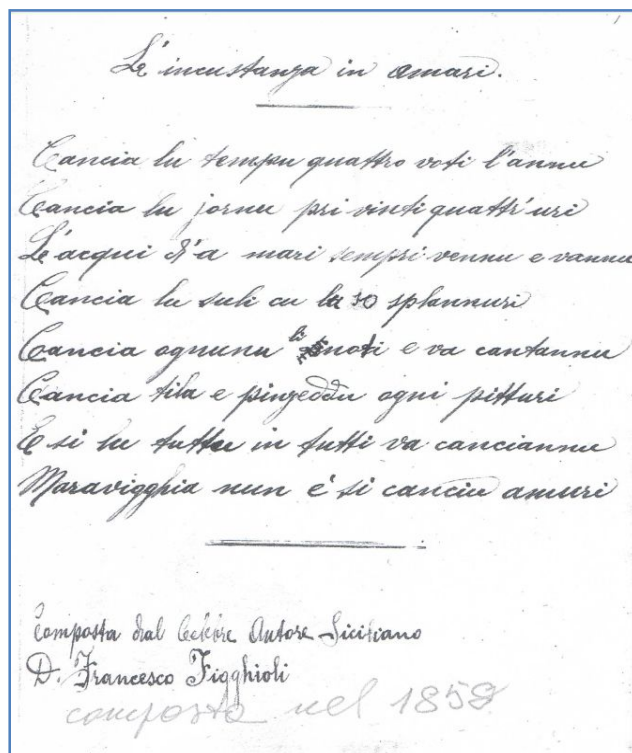 L'incustanza in amari.
Cancia lu tempu quattro voti l'annu
Cancia lu jornu pri vinti quattr'uri
L'acqui d'a mari sempri vennu e vannu
Cancia lu suli cu la so splannuri
Cancia ognunu li noti e va cantannu
Cancia tila e pinzeddu ogni pitturi
E si lu tuttu in tutti va canciannu
Maravigghia nun é si canciu amuri
Composta dal Celebre Autore Siciliano
D. Francesco Figghioli
composta nel 1859